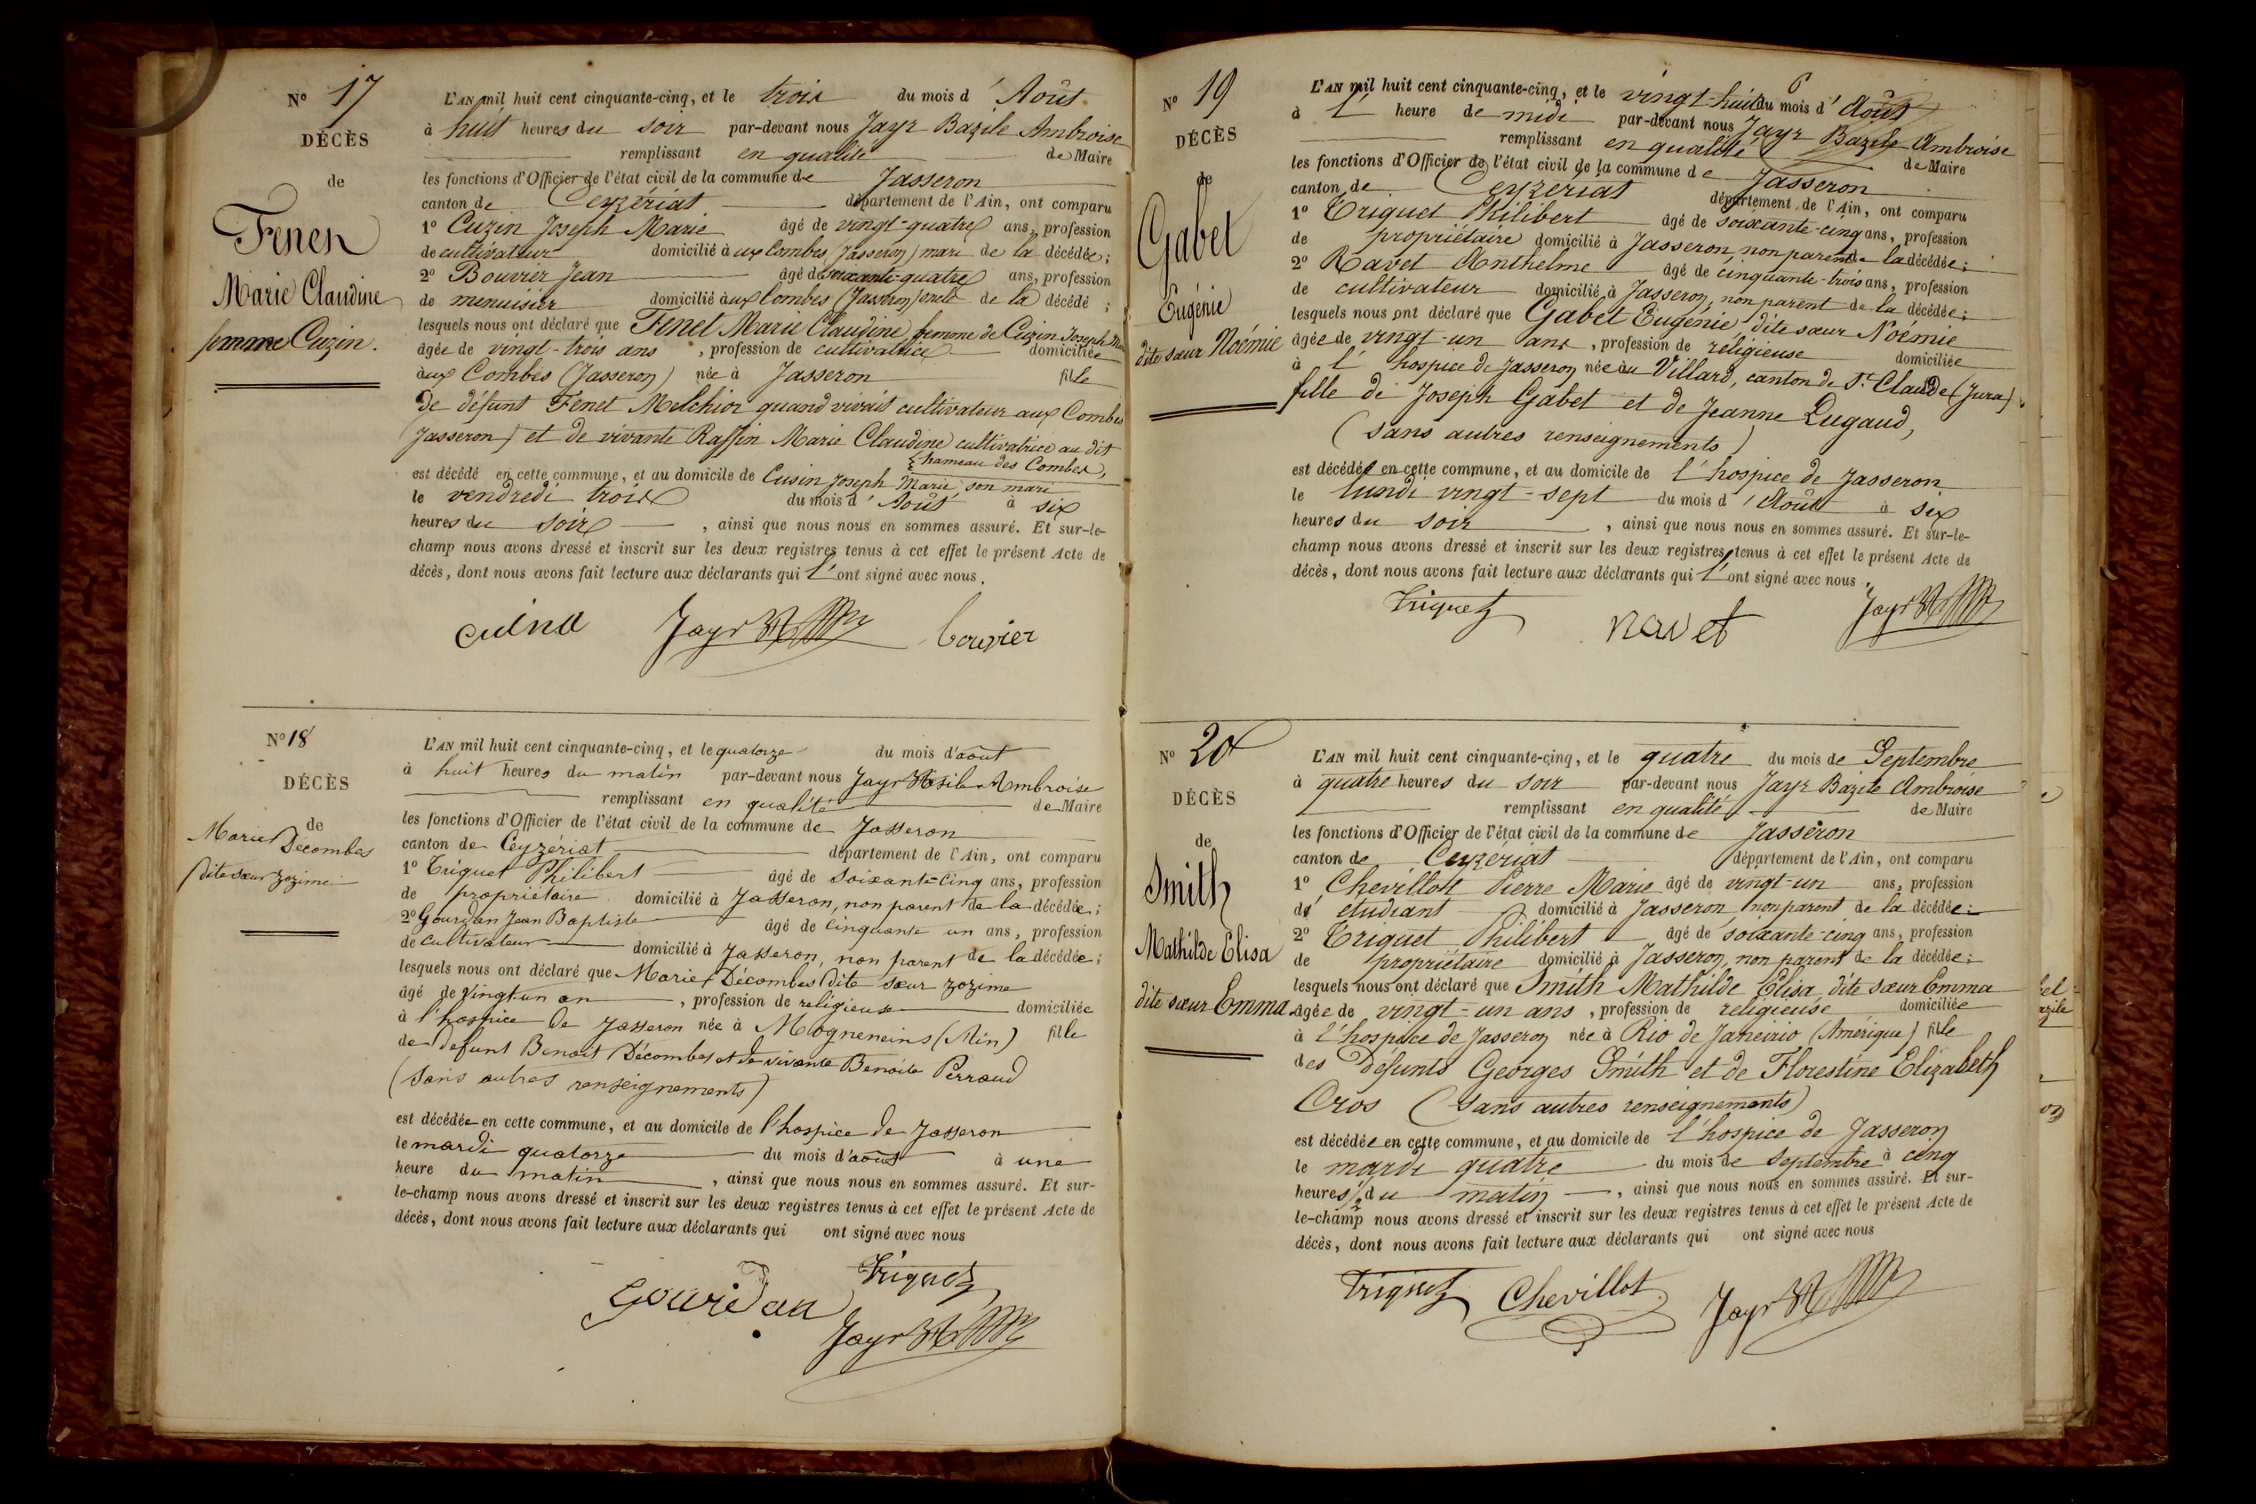 N° 17
DÉCÈS
de
Fenet
Marie Claudine
femme Cuzin.
L'AN mil huit cent cinquante-cinq, et le trois du mois d'Août
à huit heures du soir par-devant nous Jayr Bazile Ambroise
remplissant en qualité de Maire
les fonctions d'Officier de l'état civil de la commune de Jasseron
canton de Ceyzériat département de l'Ain, ont comparu
1° Cuzin Joseph Marie âgé de vingt-quatre ans, profession
de cultivateur domicilié à aux Combes (Jasseron) mari de la décédée;
2° Bouvier Jean âgé de soixante-quatre ans, profession
de menuisier domicilié à aux Combes (Jasseron) oncle de la décédé;
lesquels nous ont déclaré que Fenet Marie Claudine femme de Cuzin Joseph Marie
âgée de vingt-trois ans, profession de cultivatrice domiciliée
à aux Combes (Jasseron) née à Jasseron fille
de défunt Fenet Melchior quand vivait cultivateur aux Combes
(Jasseron) et de vivante Raffin Marie Claudine cultivatrice au dit
hameau des Combes,
est décédé en cette commune, et au domicile de Cusin Joseph Marie son mari
le vendredi trois du mois d'Août à six
heures du soir, ainsi que nous nous en sommes assuré. Et sur-le-
champ nous avons dressé et inscrit sur les deux registres tenus à cet effet le présent Acte de
décès, dont nous avons fait lecture aux déclarants qui l'ont signé avec nous.
Jayr Bouvier
N° 18
DÉCÈS
de
Marie Décombes
dite sœur zozime
L'AN mil huit cent cinquante-cinq, et le quatorze du mois d'août
à huit heures du matin par-devant nous Jayr Basile Ambroise
remplissant en qualité de Maire
les fonctions d'Officier de l'état civil de la commune de Jasseron
canton de Ceyzériat département de l'Ain, ont comparu
1° Triquet Philibert âgé de soixante-cinq ans, profession
de propriétaire domicilié à Jasseron, non parent de la décédée;
2° Gourdan Jean Baptiste âgé de cinquante un ans, profession
de cultivateur domicilié à Jasseron, non parent de la décédée;
lesquels nous ont déclaré que Marie Décombes dite sœur zozime
âgé de vingt un an, profession de religieuse domiciliée
à l'hospice de Jasseron née à Mogneneins (Ain) fille
de defunt Benoit Décombes et de vivante Benoite Perraud
(sans autres renseignements)
est décédée en cette commune, et au domicile de l'hospice de Jasseron
le mardi quatorze du mois d'août à une
heure du matin, ainsi que nous nous en sommes assuré. Et sur-
le-champ nous avons dressé et inscrit sur les deux registres tenus à cet effet le présent Acte de
décès, dont nous avons fait lecture aux déclarants qui ont signé avec nous
Triquet
Gouridan
Jayr
N° 19
DÉCÈS
de
Gabet
Eugénie
dite sœur Noémie
L'AN mil huit cent cinquante-cinq, et le vingt-huit du mois d'Août
à l' heure de midi par-devant nous Jayr Bazile Ambroise
remplissant en qualité de Maire
les fonctions d'Officier de l'état civil de la commune de Jasseron
canton de Ceyzériat département de l'Ain, ont comparu
1° Triquet Philibert âgé de soixante-cinq ans, profession
de propriétaire domicilié à Jasseron, non parent de la décédée;
2° Ravet Anthelme âgé de cinquante-trois ans, profession
de cultivateur domicilié à Jasseron, non parent de la décédée;
lesquels nous ont déclaré que Gabet Eugénie, dite sœur Noémie
âgée de vingt-un ans, profession de réligieuse domiciliée
à l'hospice de Jasseron née au Villard, canton de St Claude (Jura)
fille de Joseph Gabet et de Jeanne Dugaud,
(sans autres renseignements)
est décédée en cette commune, et au domicile de l'hospice de Jasseron
le lundi vingt-sept du mois d'Août à six
heures du soir, ainsi que nous nous en sommes assuré. Et sur-le-
champ nous avons dressé et inscrit sur les deux registres tenus à cet effet le présent Acte de
décès, dont nous avons fait lecture aux déclarants qui l'ont signé avec nous.
Triquet ravet Jayr
N° 20
DÉCÈS
de
Smith
Mathilde Elisa
dite sœur Emma
L'AN mil huit cent cinquante-cinq, et le quatre du mois de Septembre
à quatre heures du soir par-devant nous Jayr Bazile Ambroise
remplissant en qualité de Maire
les fonctions d'Officier de l'état civil de la commune de Jasseron
canton de Ceyzériat département de l'Ain, ont comparu
1° Chevillot Pierre Marie âgé de vingt-un ans, profession
de étudiant domicilié à Jasseron, non parent de la décédée;
2° Triquet Philibert âgé de soixante-cinq ans, profession
de propriétaire domicilié à Jasseron, non parent de la décédée;
lesquels nous ont déclaré que Smith Mathilde Elisa, dite sœur Emma
âgée de vingt-un ans, profession de religieuse domiciliée
à l'hospice de Jasseron née à Rio de Janeirio (Amérique) fille
des défunts Georges Smith et de Florestine Elizabeth
Cros (sans autres renseignements)
est décédée en cette commune, et au domicile de l'hospice de Jasseron
le mardi quatre du mois de septembre à cinq
heures du matin, ainsi que nous nous en sommes assuré. Et sur-
le-champ nous avons dressé et inscrit sur les deux registres tenus à cet effet le présent Acte de
décès, dont nous avons fait lecture aux déclarants qui ont signé avec nous
Triquet Chevillot Jayr